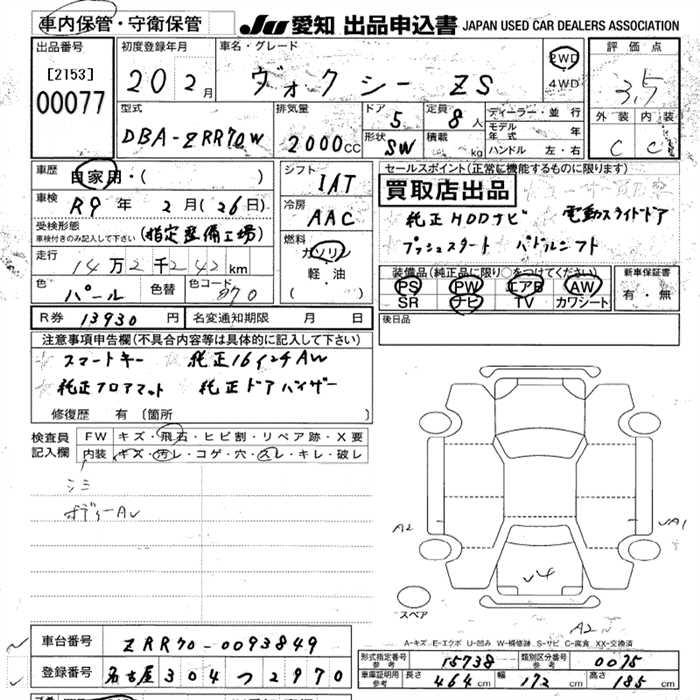 車内保管・守衛保管 JU 愛知 出品申込書 JAPAN USED CAR DEALERS ASSOCIATION
出品番号 初度登録年月 車名・グレード 評価点
[2153] 20 2月 ヴォクシー ZS 2WD 3,5
00077 4WD
型式 排気量 ドア 5 定員 8人 ディーラー・並行 外装 内装
DBA-ZRR70W 2000CC 形状 SW 積載 kg モデル年式 年 C C
ハンドル 左・右
車歴 自家用・( ) シフト IAT セールスポイント(正常に機能するものに限ります)
車検 R9年 2月(26日) 冷房 AAC 買取店出品
受検形態 純正HDDナビ 電動スライドドア
車検付きのみ記入して下さい (指定整備工場) プッシュスタート パドルシフト
走行 14万2千242km 燃料 ガソリン
軽油
( )
色 パール 色替 色コード 070
装備品(純正品に限り○をつけてください) 新車保証書
PS PW エアB AW 有・無
SR ナビ TV カワシート
R券 13930円 名変通知期限 月 日 後日品
注意事項申告欄(不具合内容等は具体的に記入して下さい)
スマートキー 純正16インチAW
純正フロアマット 純正ドアバイザー
修復歴 有〔箇所
検査員 FW キズ・飛石・ヒビ割・リペア跡・X要
記入欄 内装 キズ・汚レ・コゲ・穴・スレ・キレ・破レ
シミ
ボディーAU
A2 UA1
U4
スペア
A2
A-キズ E-エクボ U-凹み W-補修跡 S-サビ C-腐食 XX-交換済
車台番号 ZRR70-0093849
登録番号 名古屋 304 つ 2970
形式指定番号 参考 15738 類別区分番号 参考 0075
車庫証明用 参考 長さ 464cm 幅 172cm 高さ 185cm